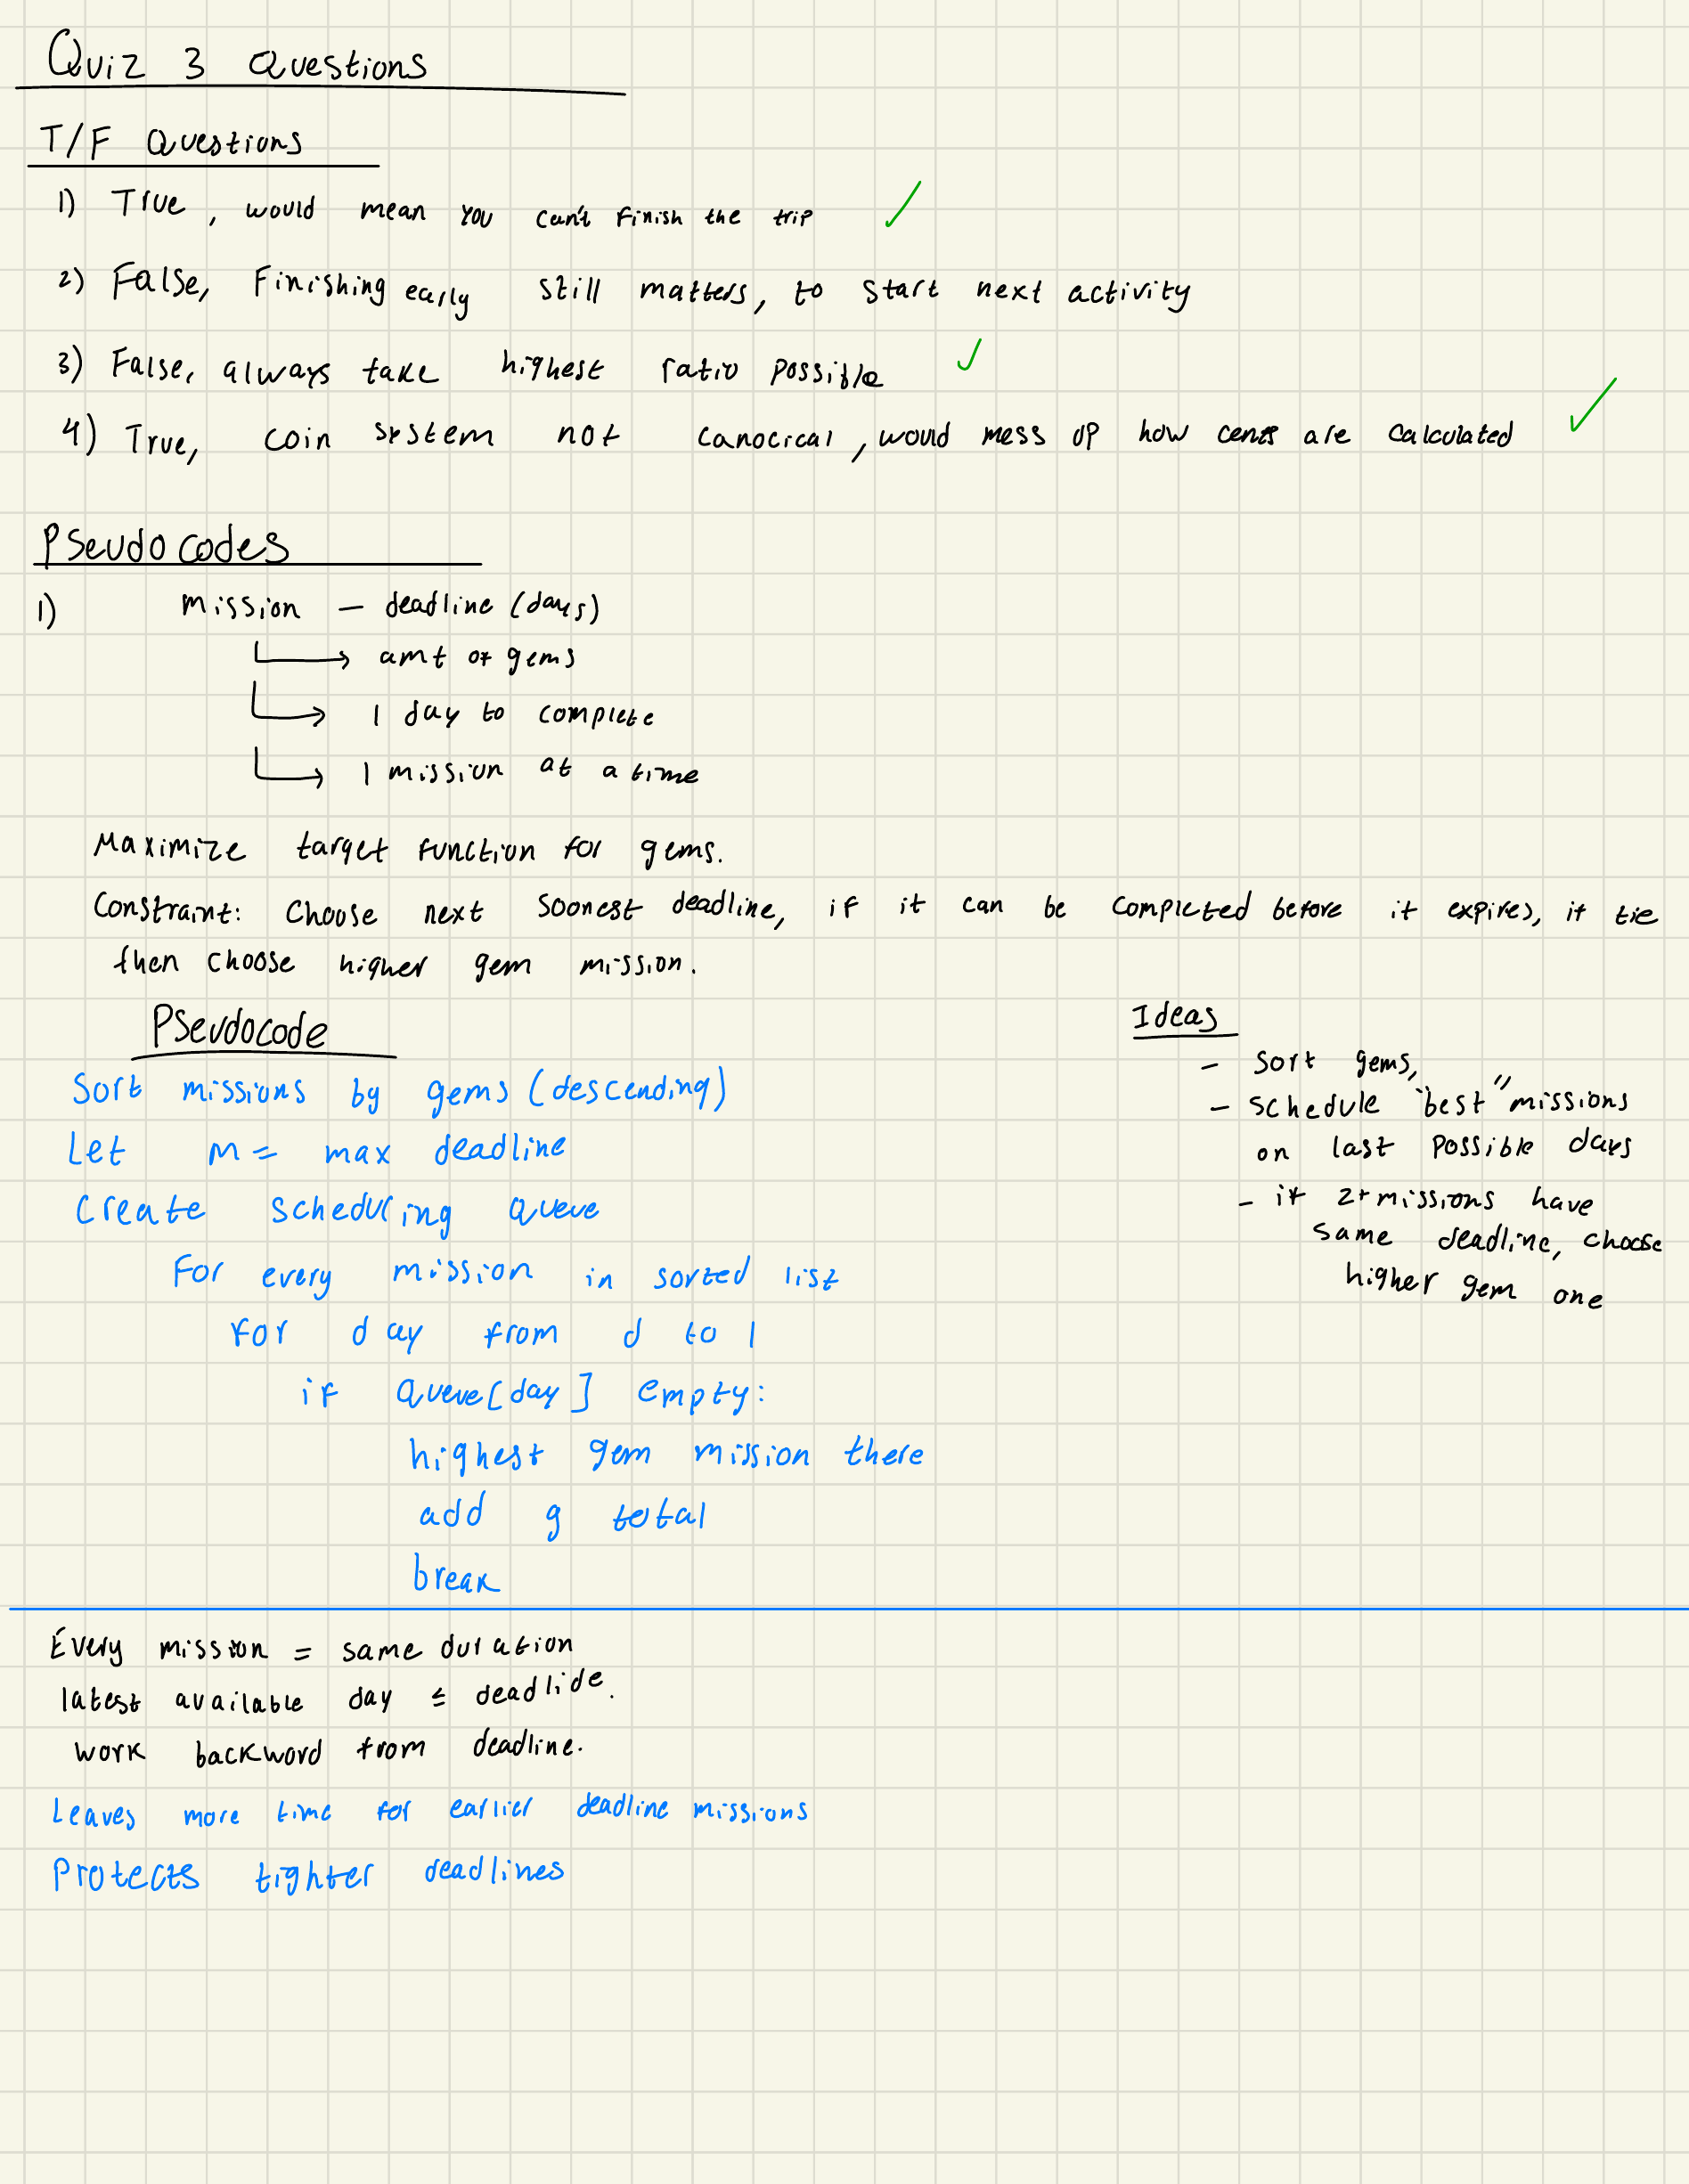 Quiz 3 Questions
T/F Questions
1) True, would mean you can't finish the trip ✓
2) False, Finishing early still matters, to start next activity
3) False, always take highest ratio possible ✓
4) True, coin system not canocical, would mess up how cents are calculated ✓
Pseudocodes
1) mission – deadline (days)
→ amt of gems
→ 1 day to complete
→ 1 mission at a time
Maximize target function for gems.
Constraint: Choose next soonest deadline, if it can be completed before it expires, if tie
then choose higher gem mission.
Pseudocode
Sort missions by gems (descending)
Let M = max deadline
Create scheduling queue
For every mission in sorted list
For day from d to 1
if queue[day] empty:
highest gem mission there
add g total
break
Ideas
- sort gems,
- schedule "best" missions
on last possible days
- if 2+ missions have
same deadline, choose
higher gem one
Every mission = same duration
latest available day ≤ deadlide.
work backword from deadline.
Leaves more time for earlier deadline missions
Protects tighter deadlines